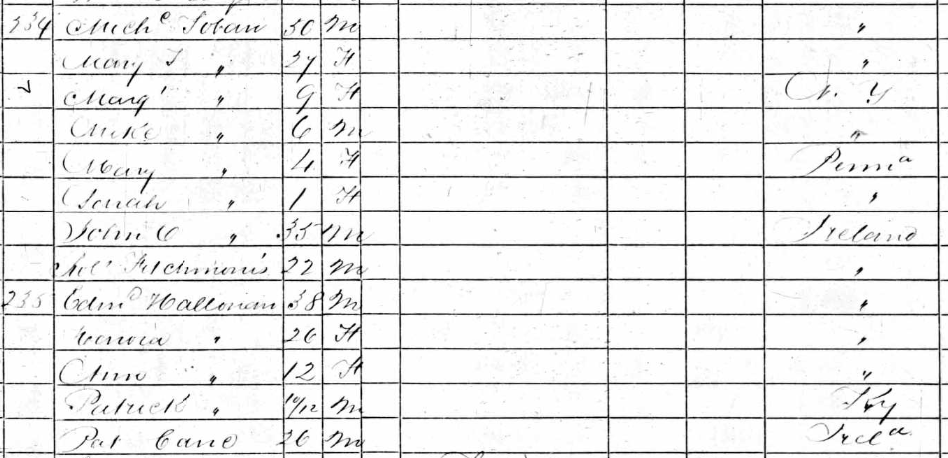 234 Mich.c Toban 30 M "
Mary T " 27 F "
Marg.t " 9 F N. Y
Mike " 6 M "
Mary " 4 F Penn.a
" 1 F "
John C " 35 M Ireland
22 M "
235 Edm.d Halloran 38 M "
" 26 F "
Ann " 12 F "
Patrick " 10/12 M Ky
Pat Cane 26 M Irel.a